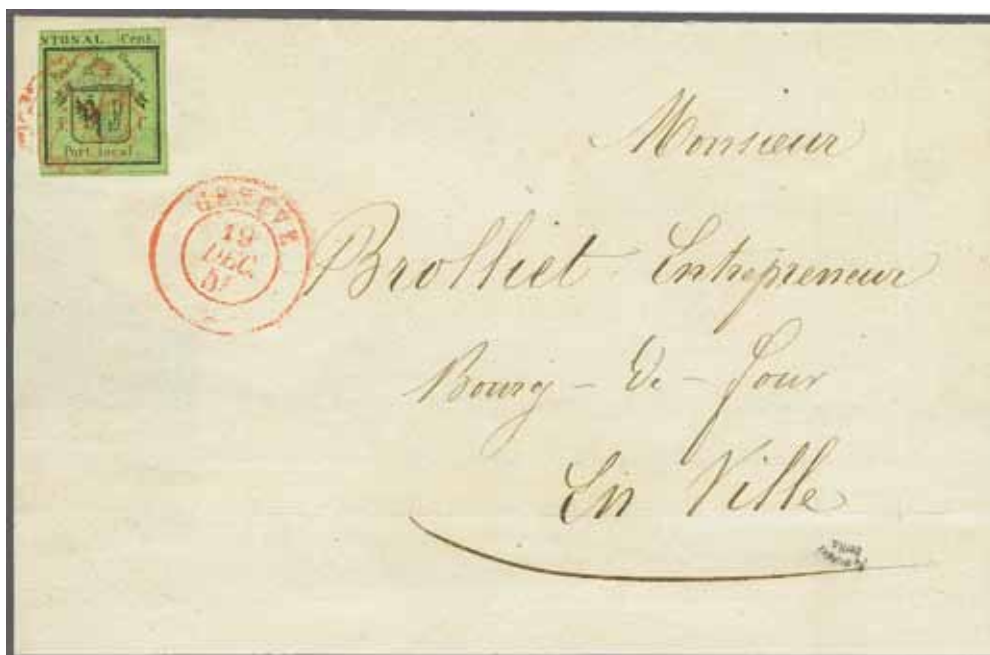 NTONAL. Cent.
Port local.
GENEVE
19
DEC.
51
Monsieur
Brolliet Entrepreneur
Bourg - De - Four
En Ville